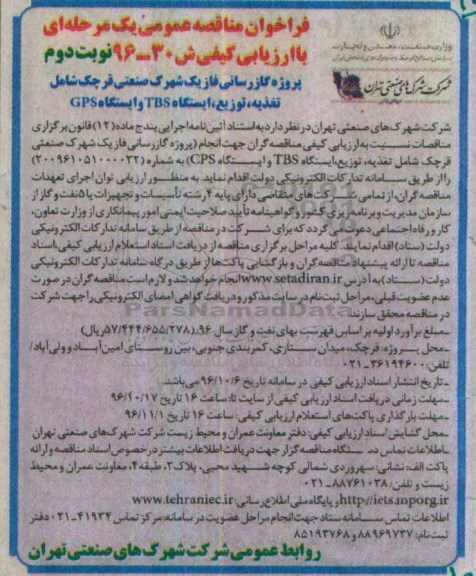 فراخوان مناقصه عمومی یک مرحله‌ای
با ارزیابی کیفی ش ۳۰-۹۶ نوبت دوم
پروژه گازرسانی فاز یک شهرک صنعتی قرچک شامل
تغذیه، توزیع، ایستگاه TBS و ایستگاه GPS
وزارت صنعت، معدن و تجارت
شرکت شهرک‌های صنعتی تهران
شرکت شهرک‌های صنعتی تهران در نظر دارد به استناد آئین‌نامه اجرایی بند ج ماده (۱۲) قانون برگزاری
مناقصات نسبت به ارزیابی کیفی مناقصه گران جهت انجام (پروژه گازرسانی فاز یک شهرک صنعتی
قرچک شامل تغذیه، توزیع، ایستگاه TBS و ایستگاه CPS) به شماره (۲۰۰۹۶۱۰۵۱۰۰۰۰۳۲)
را از طریق سامانه تدارکات الکترونیکی دولت اقدام نماید. به منظور ارزیابی توان اجرای تعهدات
مناقصه گران، از تمامی شرکت‌های متقاضی دارای پایه ۴ رشته تأسیسات و تجهیزات یا ۵ نفت و گاز از
سازمان مدیریت و برنامه ریزی کشور و گواهینامه تأیید صلاحیت ایمنی امور پیمانکاری از وزارت تعاون،
کار و رفاه اجتماعی دعوت می گردد که برای شرکت در مناقصه از طریق سامانه تدارکات الکترونیکی
دولت (ستاد) اقدام نمایند. کلیه مراحل برگزاری مناقصه از دریافت اسناد استعلام ارزیابی کیفی، اسناد
مناقصه تا ارائه پیشنهاد مناقصه‌گران و بازگشایی پاکت‌ها از طریق درگاه سامانه تدارکات الکترونیکی
دولت (ستاد) به آدرس www.setadiran.ir انجام خواهد شد و لازم است مناقصه گران در صورت
عدم عضویت قبلی، مراحل ثبت‌نام در سایت مذکور و دریافت گواهی امضای الکترونیکی را جهت شرکت
در مناقصه محقق سازند.
-مبلغ برآورد اولیه بر اساس فهرست بهای نفت و گاز سال ۹۶: (۵۷/۴۴۴/۶۵۵/۲۷۸ ریال)
-محل پروژه: قرچک، میدان ستاری، کمربندی جنوبی، بین روستای امین‌آباد و ولی‌آباد/
تلفن: ۳۶۱۹۴۶۰۰-۰۲۱
-تاریخ انتشار اسناد ارزیابی کیفی در سامانه تاریخ ۹۶/۱۰/۶ می‌باشد.
-مهلت زمانی دریافت اسناد ارزیابی کیفی از سایت تا: ساعت ۱۶ تاریخ ۹۶/۱۰/۱۷
-مهلت بارگذاری پاکت‌های استعلام ارزیابی کیفی: ساعت ۱۶ تاریخ ۹۶/۱۱/۱
-محل گشایش اسناد ارزیابی کیفی: دفتر معاونت عمران و محیط زیست شرکت شهرک‌های صنعتی تهران
-اطلاعات تماس دستگاه مناقصه گزار جهت دریافت اطلاعات بیشتر در خصوص اسناد مناقصه و ارائه
پاکت الف: نشانی: سهروردی شمالی کوچه شهید محبی، پلاک ۲، طبقه ۴، معاونت عمران و محیط
زیست و تلفن: ۸۸۷۶۱۰۳۸-۰۲۱
http://iets.mporg.ir و پایگاه ملی اطلاع رسانی: www.tehraniec.ir
اطلاعات تماس سامانه ستاد جهت انجام مراحل عضویت در سامانه: مرکز تماس ۴۱۹۳۴-۰۲۱ دفتر
ثبت‌نام: ۸۸۹۶۹۷۳۷ و ۸۵۱۹۳۷۶۸
روابط عمومی شرکت شهرک‌های صنعتی تهران
ParsNamadData